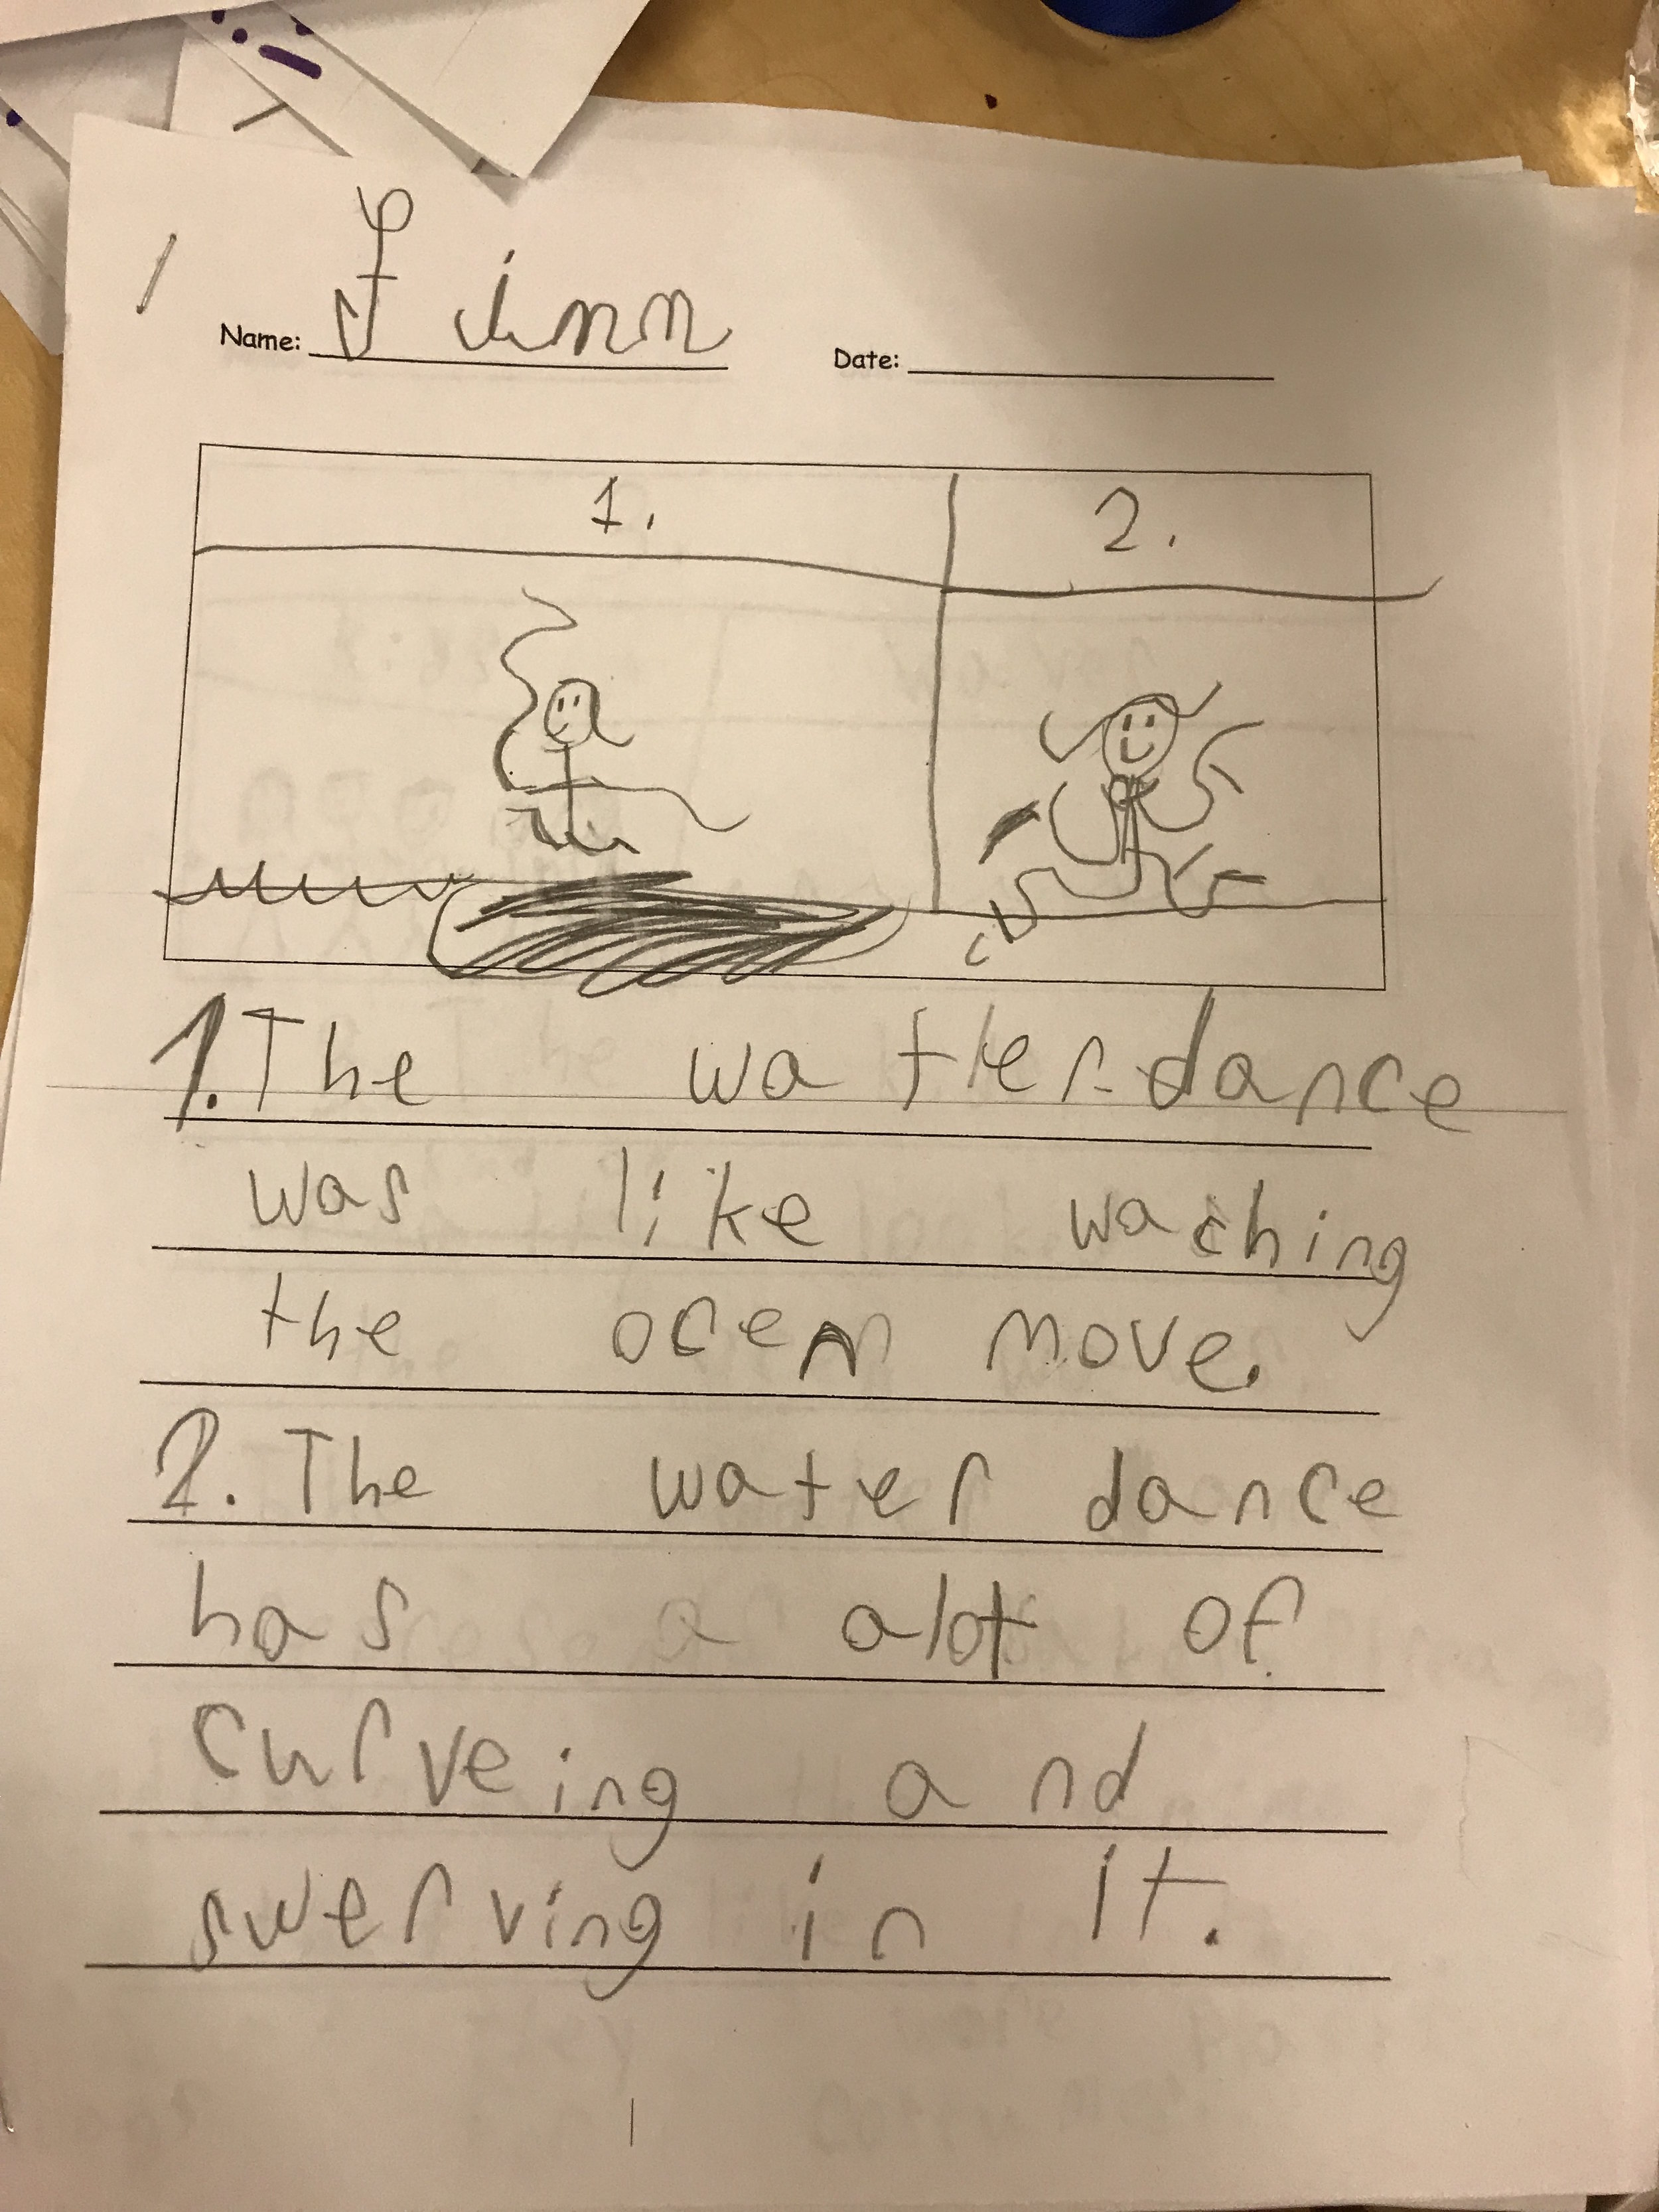 Name: Finn Date:
1. 2.
1. The watter-dance
was like waching
the ocen move.
2. The water dance
has a alot of
curveing and
swerving in it.